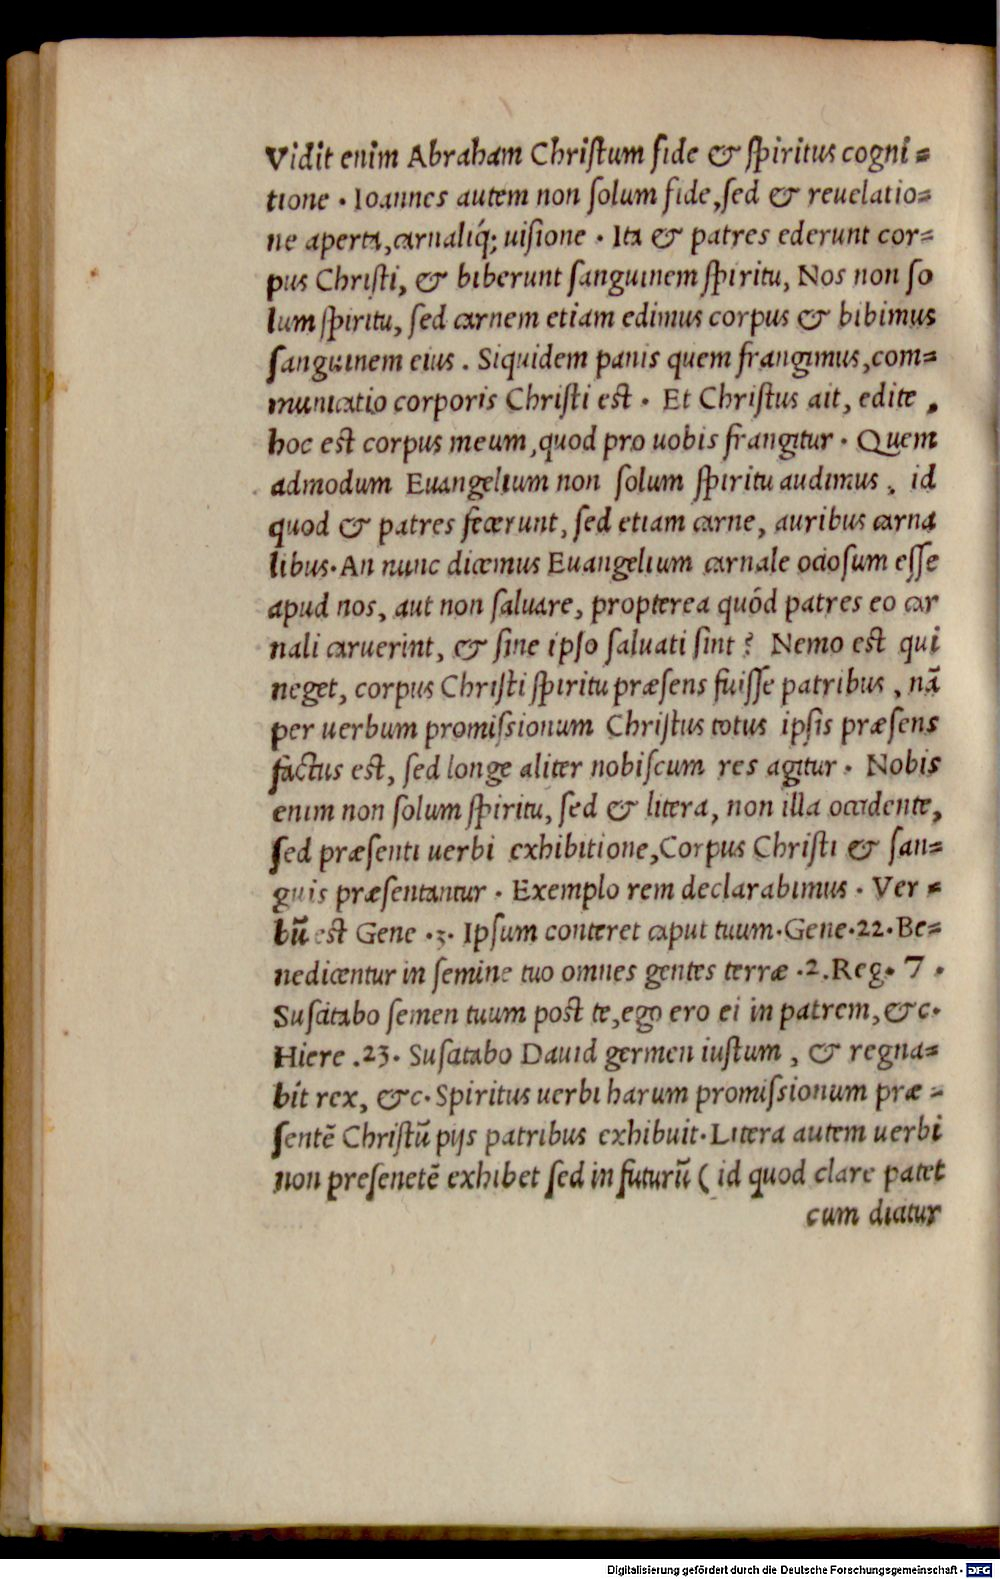 Vidit enim Abraham Chriſtum fide & ſpiritus cogni=
tione . Ioannes autem non ſolum fide, ſed & reuelatio=
ne aperta, carnaliq́; uiſione . Ita & patres ederunt cor=
pus Chriſti, & biberunt ſanguinem ſpiritu, Nos non ſo
lum ſpiritu, ſed carnem etiam edimus corpus & bibimus
ſanguinem eius . Siquidem panis quem frangimus, com=
municatio corporis Chriſti eſt . Et Chriſtus ait, edite ,
hoc eſt corpus meum, quod pro uobis frangitur . Quem
admodum Euangelium non ſolum ſpiritu audimus , id
quod & patres fecerunt, ſed etiam carne, auribus carna
libus. An nunc dicemus Euangelium carnale ocioſum eſſe
apud nos, aut non ſaluare, propterea quód patres eo car
nali caruerint, & ſine ipſo ſaluati ſint ? Nemo eſt qui
neget, corpus Chriſti ſpiritu præſens fuiſſe patribus , nā
per uerbum promiſsionum Chriſtus totus ipſis præſens
factus eſt, ſed longe aliter nobiſcum res agitur . Nobis
enim non ſolum ſpiritu, ſed & litera, non illa occidente,
ſed præſenti uerbi exhibitione, Corpus Chriſti & ſan=
guis præſentantur . Exemplo rem declarabimus . Ver =
bū eſt Gene .3. Ipſum conteret caput tuum. Gene. 22. Be=
nedicentur in ſemine tuo omnes gentes terræ .2. Reg. 7 .
Suſcitabo ſemen tuum poſt te, ego ero ei in patrem, &c.
Hiere .23. Suſcitabo Dauid germen iuſtum , & regna=
bit rex, &c. Spiritus uerbi harum promiſsionum præ =
ſentē Chriſtū pijs patribus exhibuit. Litera autem uerbi
non preſenetē exhibet ſed in futurū ( id quod clare patet
cum dicitur
Digitalisierung gefördert durch die Deutsche Forschungsgemeinschaft - DFG